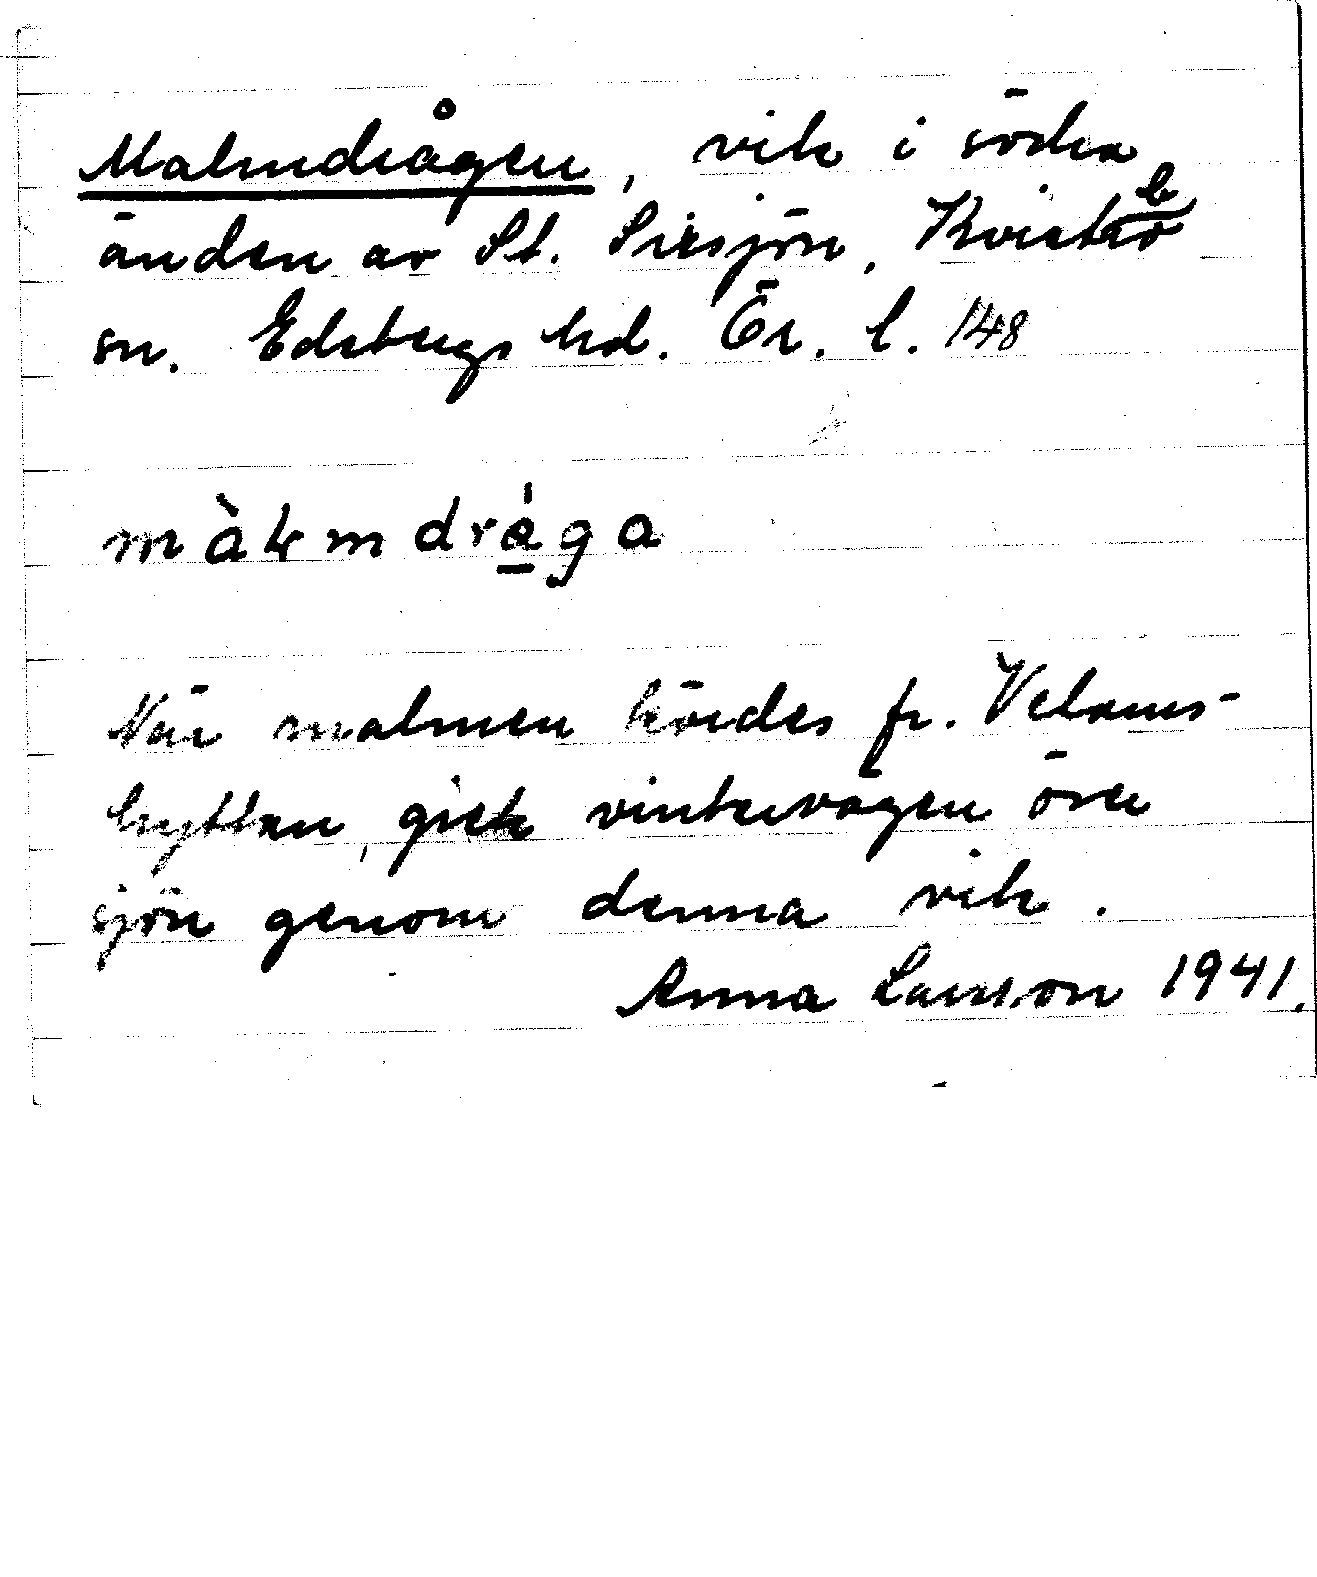 Malmdrågen, vik i södra
änden av St. Sirsjön, Kvistbro
sn. Edsbergs hd. Ör. l. 148
màlmdråga
När malmen kördes fr. Velams-
hyttan, gick vintervägen över
sjön genom denna vik.
Anna Larsson 1941.